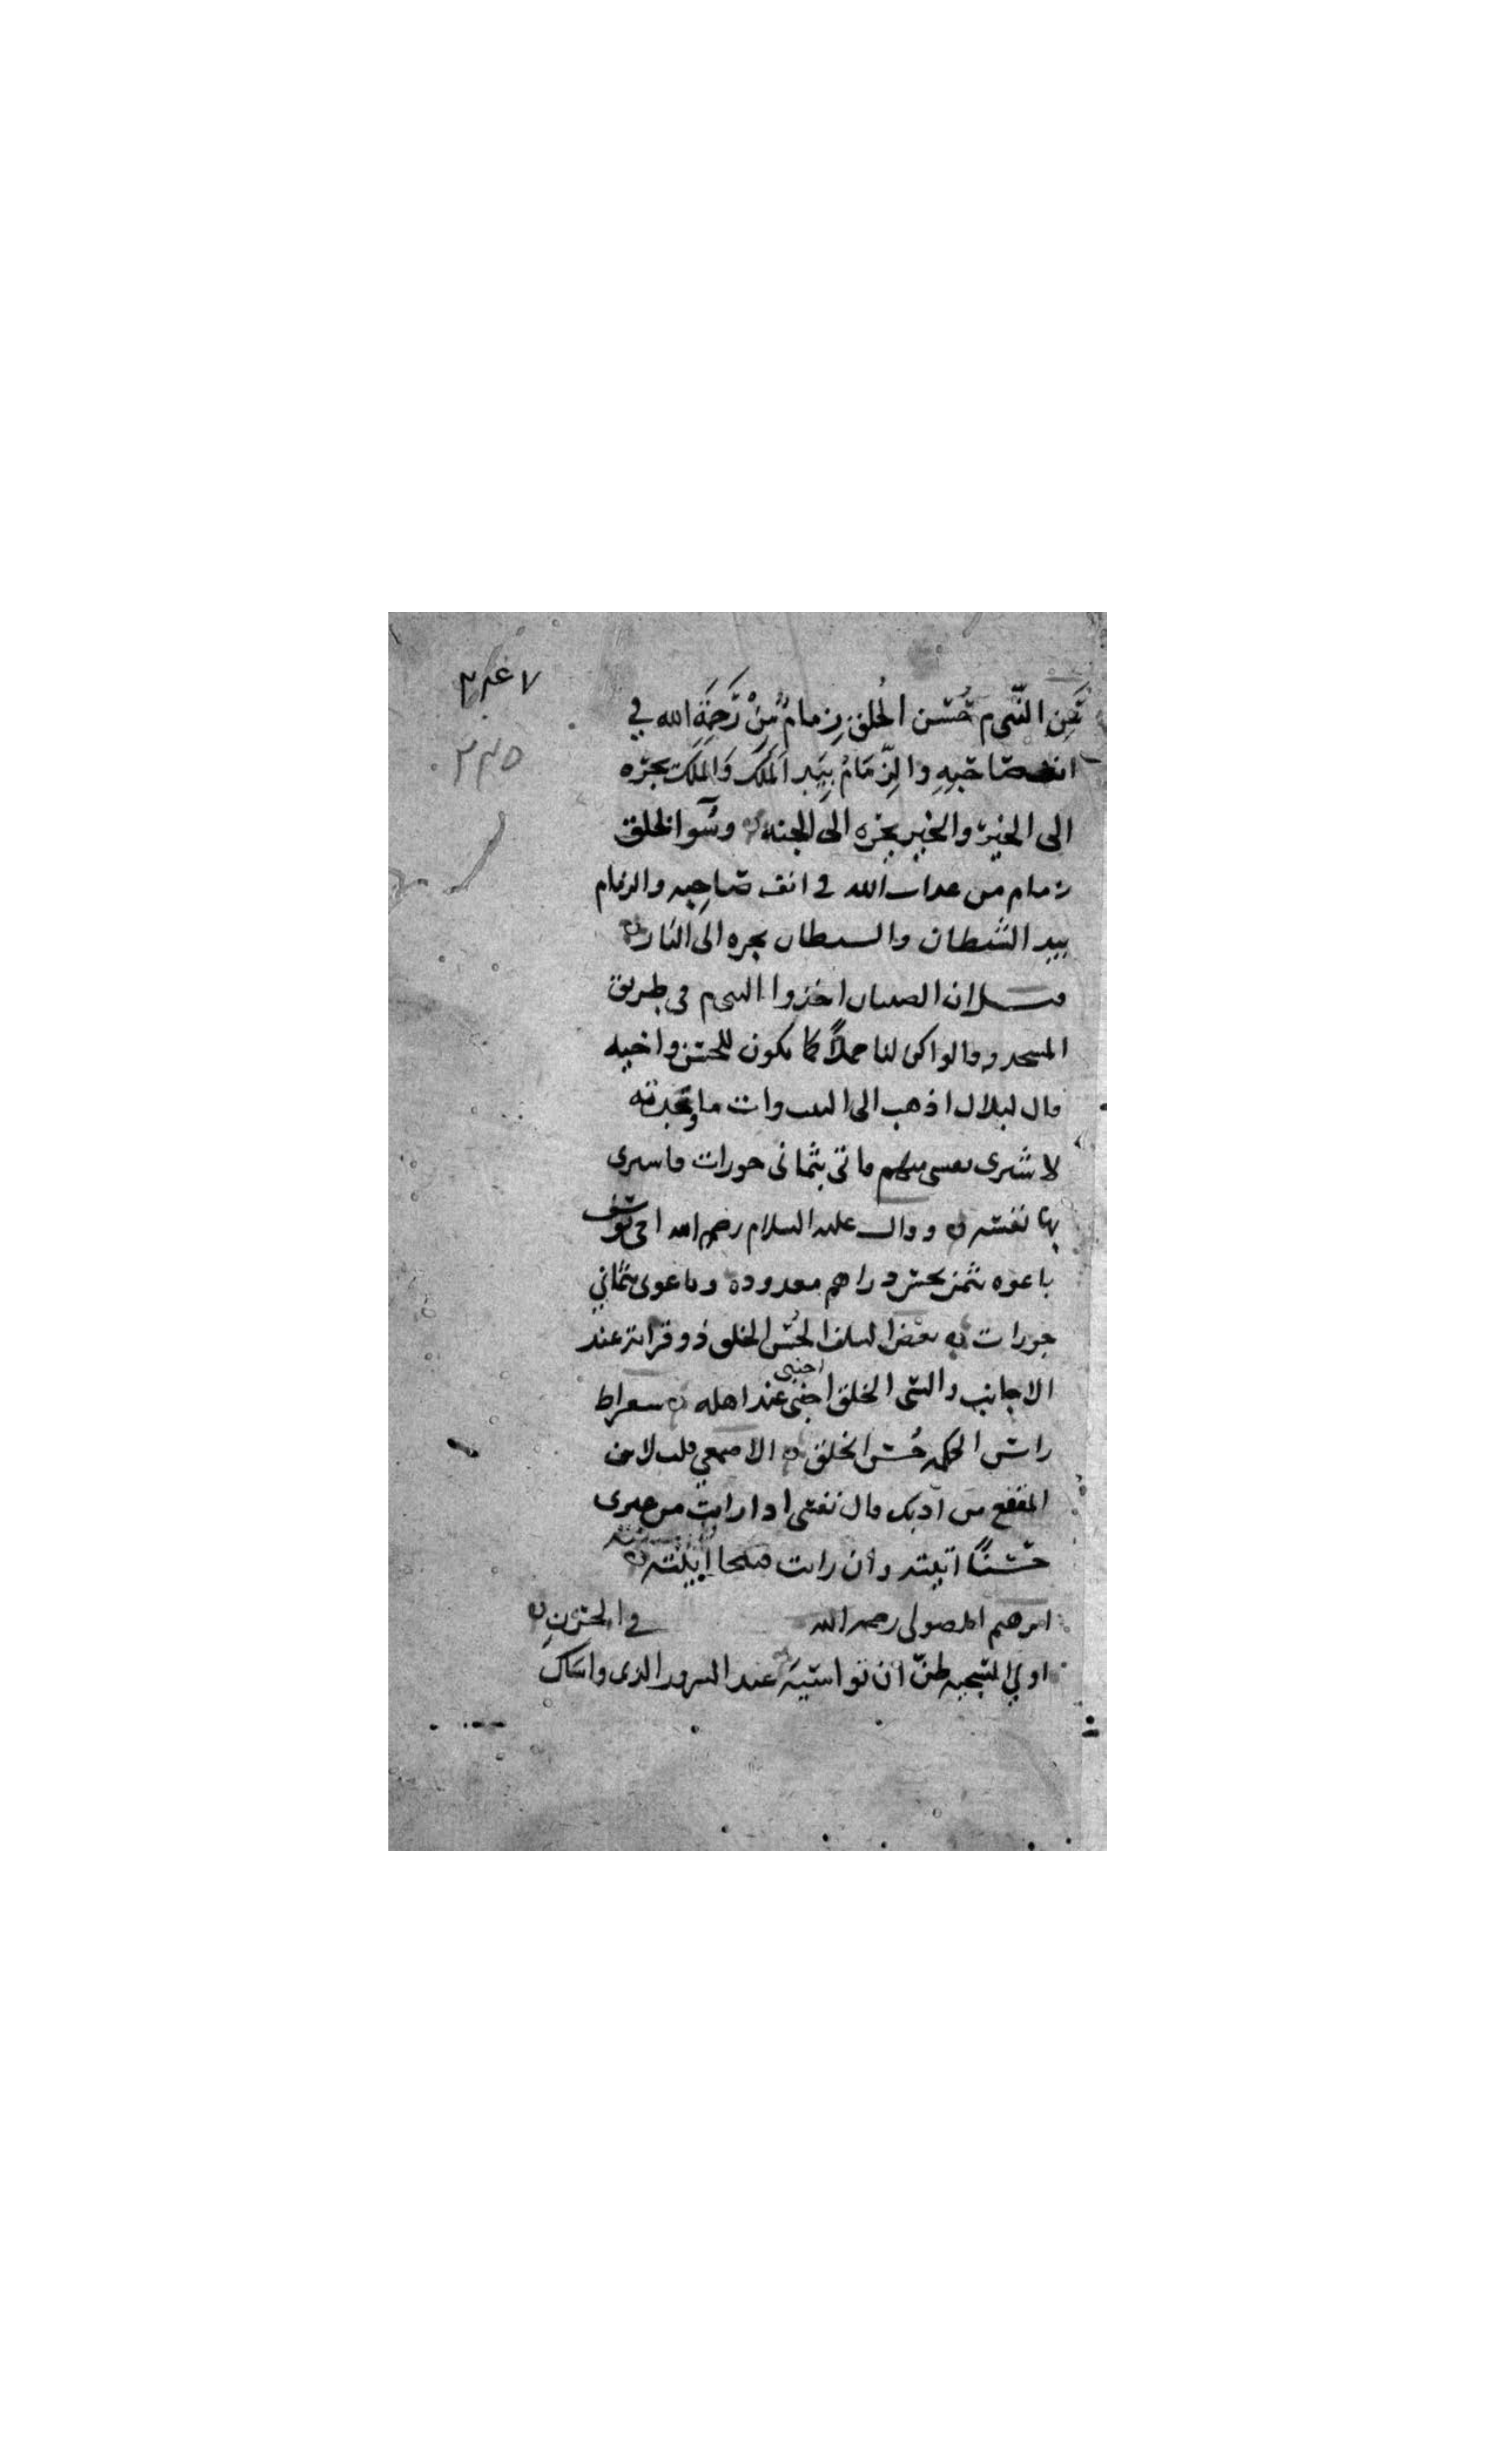 ٣٤٧
٣٣٥
عَنِ النَّبي م حُسْن الخُلق زمامٌ مِنْ رَحمَةِ الله في
انف صَاحبِهِ والزّمَامُ بيَدِ المَلَك وَالمَلَك يجرّه
الى الخير والخير يجرّه الى الجنه وسُوٓ الخلق
زمام من عداب الله في انف صَاحِبه والزمام
بيدِ الشيطان والسطان يجره الى النار
قيل ان الصبيان اخذوا النبي م في طريق
المسجد وقالوا كن لنا جملاً كما يكون للحسن واخيه
قال لبلال اذهب الى البيت وات ما وجدته
لاشترى نفسي منهم فاتى بثماني جوزات فاشترى
بها نفسَه ووال عليه السلام رحم الله اخي يوسف
باعوه بثمن بخس دراهم معدودة وباعوني بثماني
جوزات بعض السلف الحُسن الخلق ذو قرابة عند
الاجانب والسّي الخلق اجنبي عند اهله سقراط
اجنبي
راس الحكمه حُسن الخلق الاصمعي قلت لابن
المقفع من ادبك قال نفسى اذا رايت من غيرى
حَسَنًا اتيته وان رايت قبيحا ابيته
ابرهيم الصولى رحمه الله في الحزن
اولي البريه طرّا ان تواسيَه عند السرور الذى واساكَ